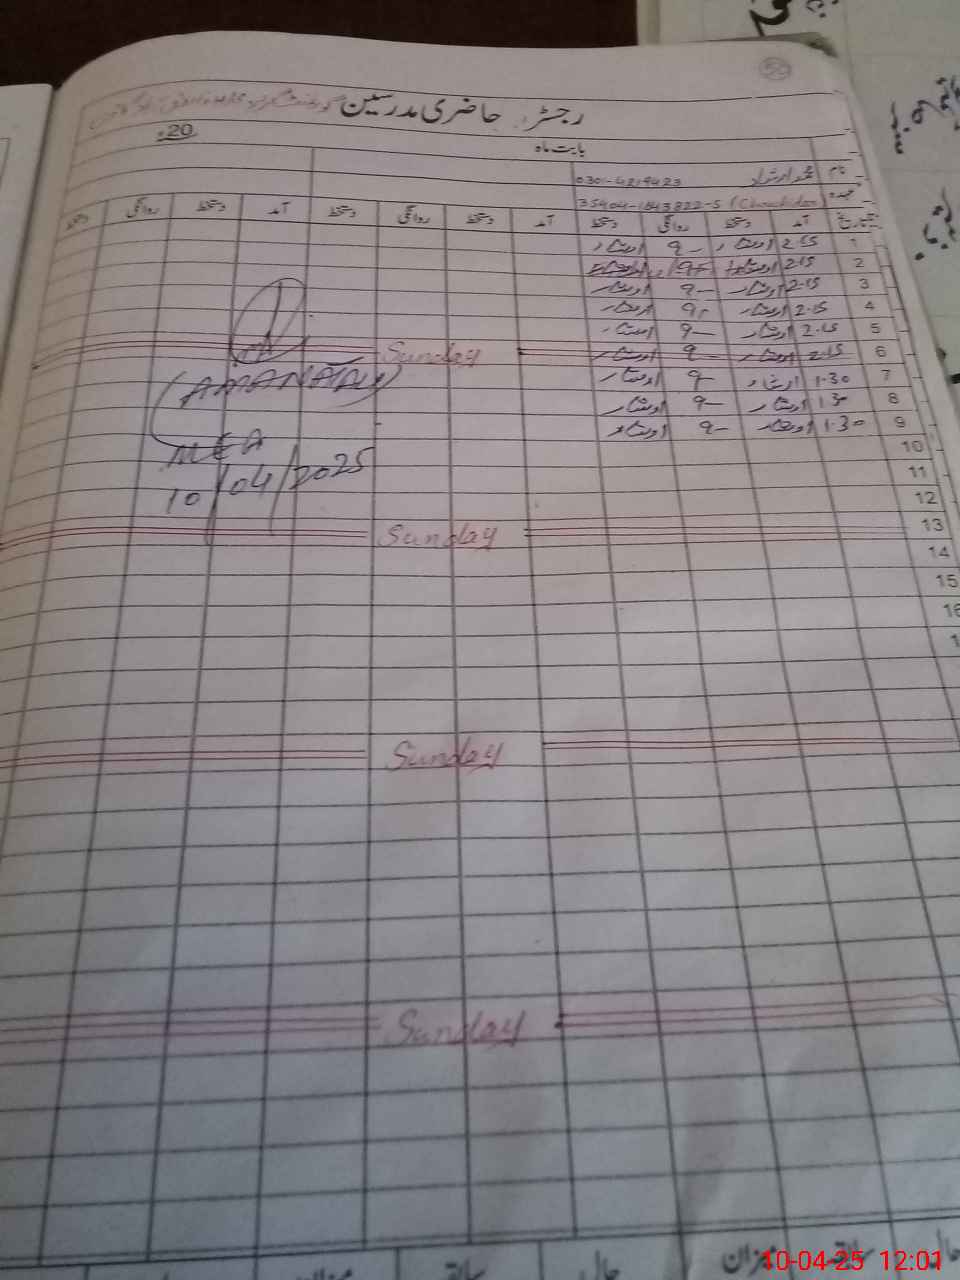 50
رجسٹر حاضری مدرسین گورنمنٹ
20
بابت ماہ
نام محمد ارشاد 0301-4219423
عہدہ (Chowkidar) 35404-1643822-5
تاریخ آمد دستخط روانگی دستخط آمد دستخط روانگی دستخط آمد دستخط روانگی دستخط
1 2-15 ارشاد 9- ارشاد
2 2-15 ارشاد 9- ارشاد
3 2-15 ارشاد 9- ارشاد
4 2-15 ارشاد 9- ارشاد
5 2-15 ارشاد 9- ارشاد
6 2-15 ارشاد 9- ارشاد Sunday
7 1-30 ارشاد 9- ارشاد
8 1-30 ارشاد 9- ارشاد
9 1-30 ارشاد 9- ارشاد
(AMANAT ALI)
MEA
10/04/2025
10
11
12
13 Sunday
14
15
16
Sunday
Sunday
میزان سابقہ حال میزان سابقہ حال
10-04-25 12:01